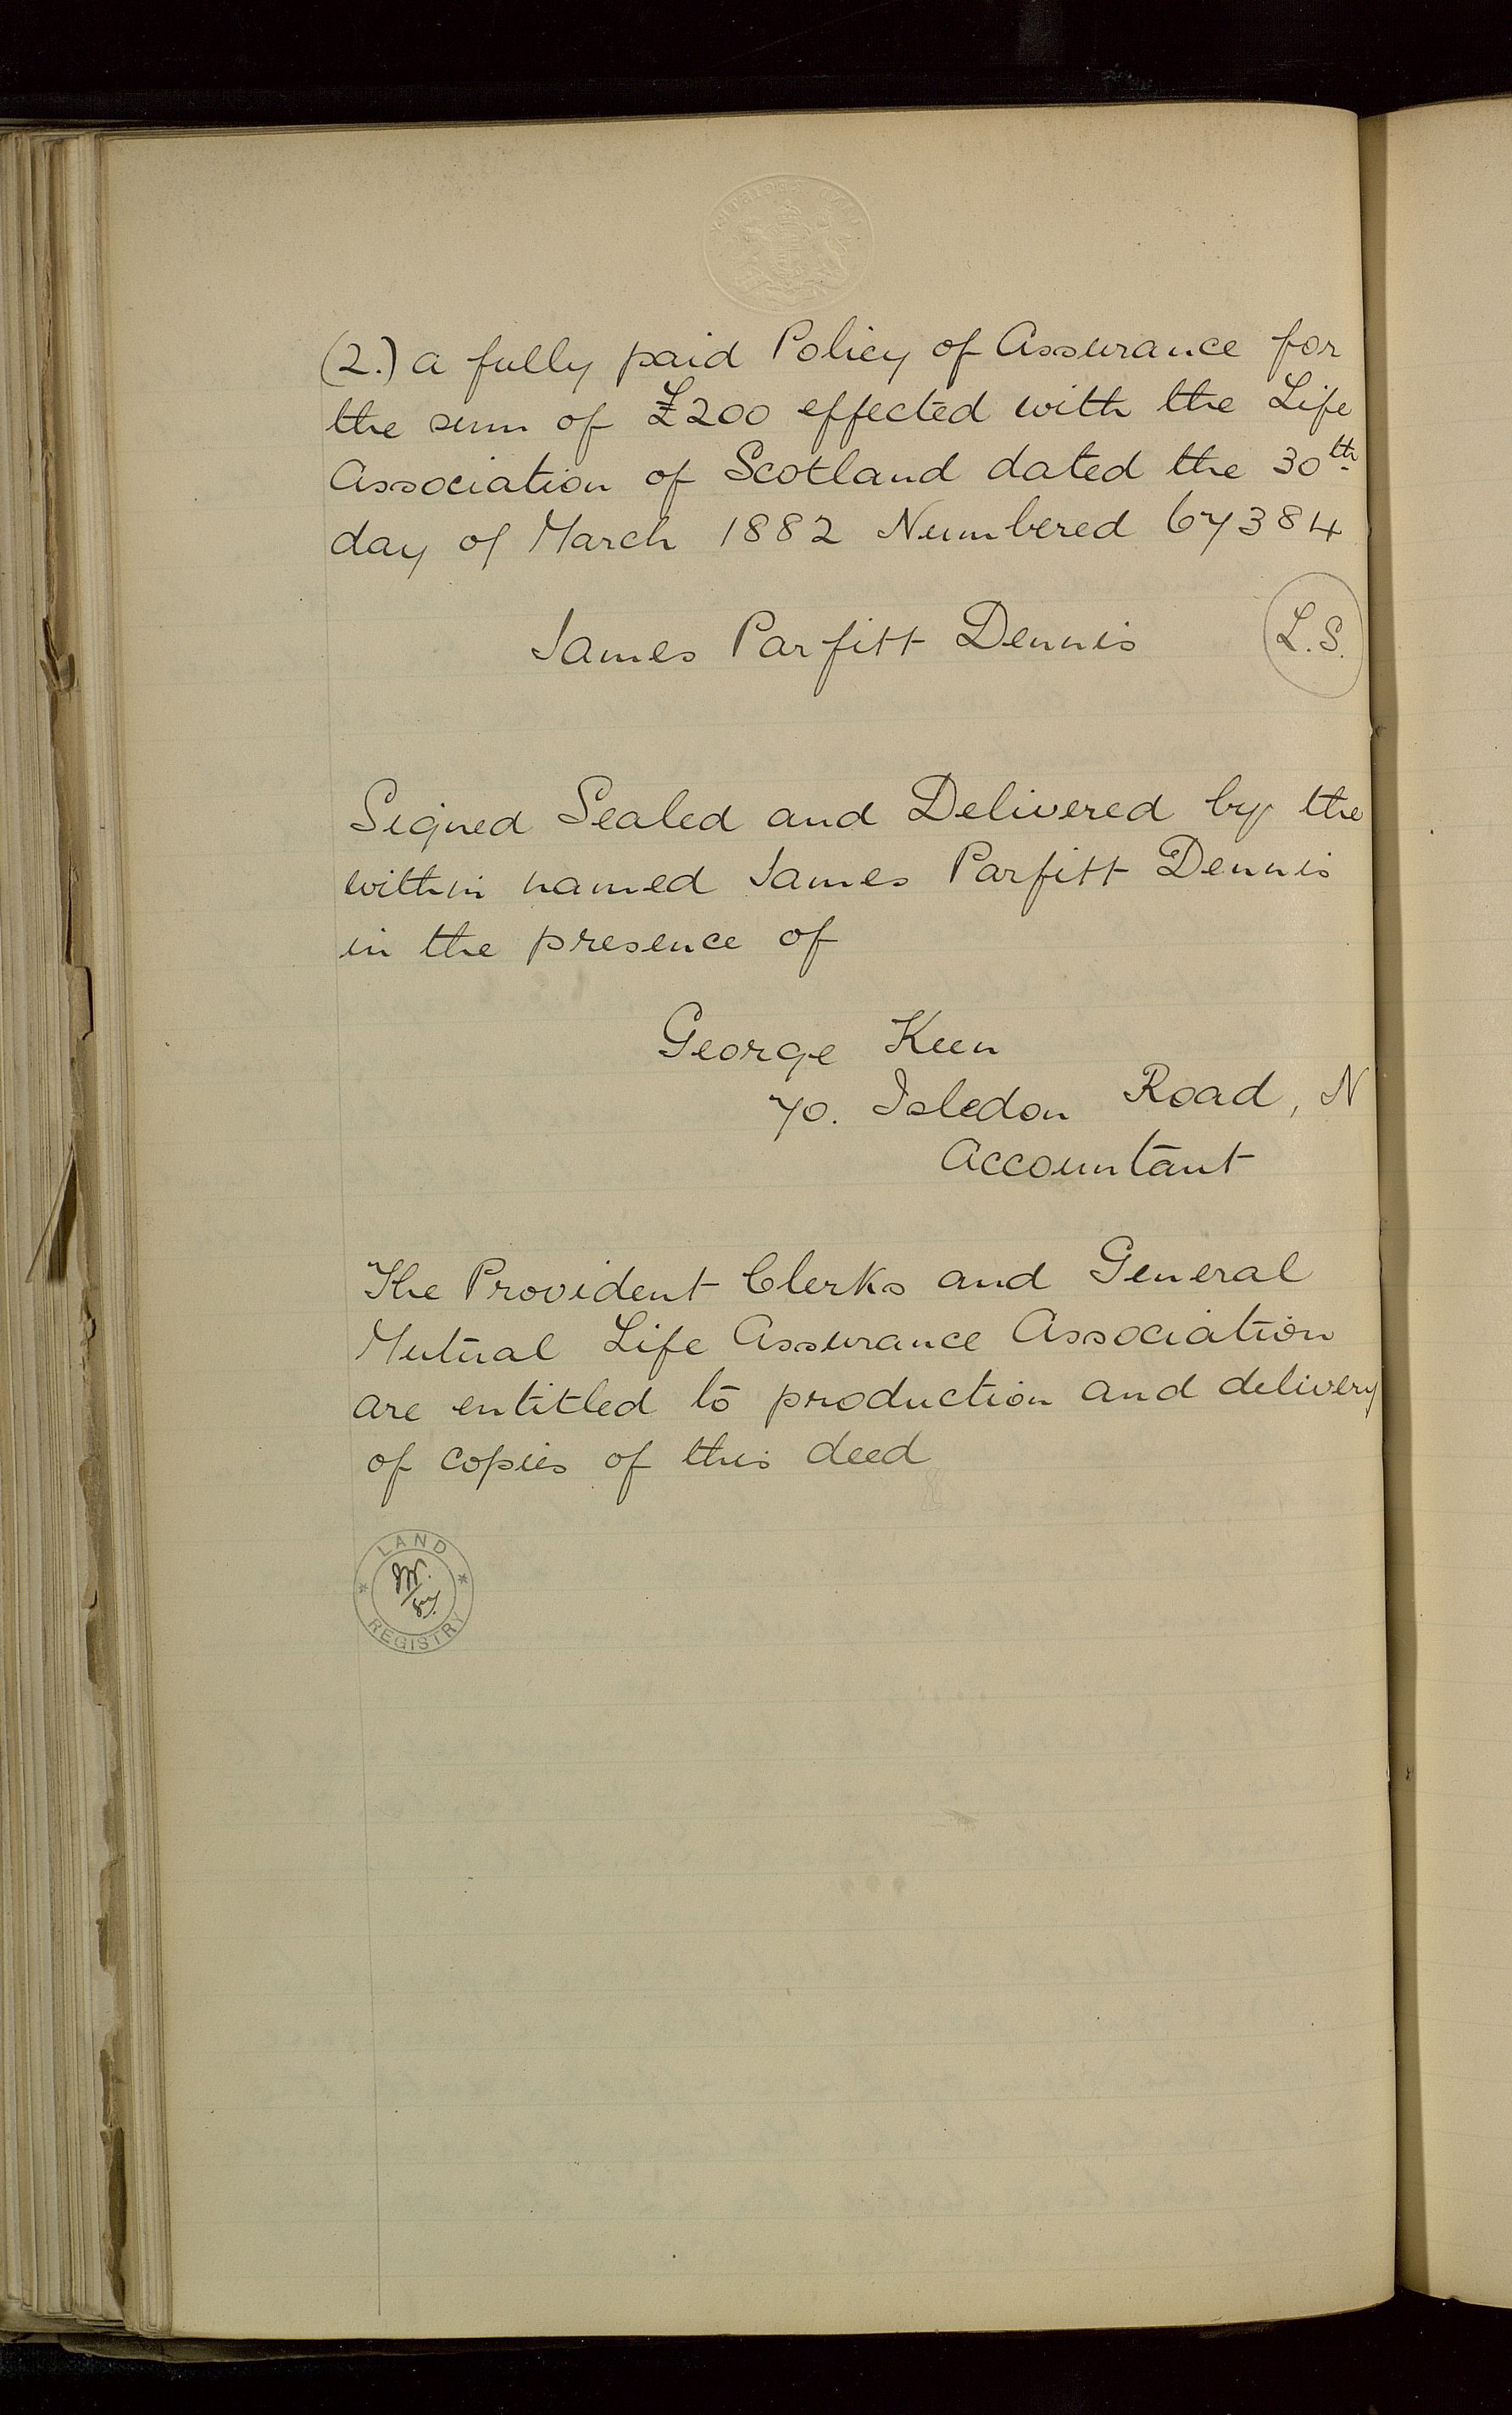 (2.) a fully paid Policy of Assurance for
the sum of £200 effected with the Life
Association of Scotland dated the 30th
day of March 1882 Numbered 67384
James Parfitt Dennis L.S.
Signed Sealed and Delivered by the
within named James Parfitt Dennis
in the presence of
George Keen
70. Isledon Road, N
Accountant
The Provident Clerks and General
Mutual Life Assurance Association
are entitled to production and delivery
of copies of this deed
LAND
REGISTRY